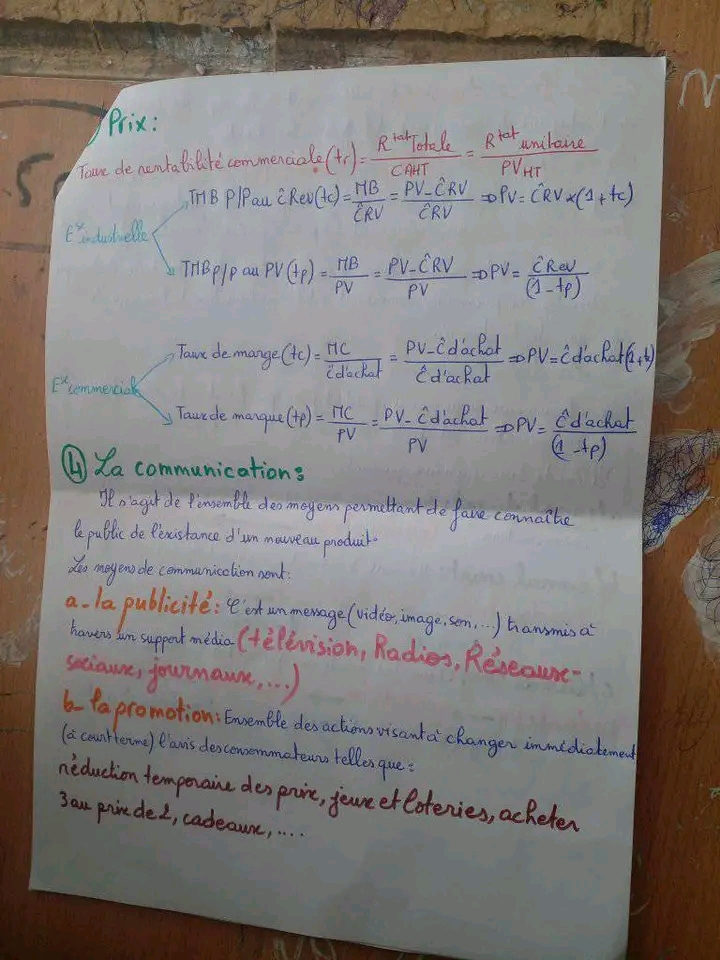 ) Prix:
Taux de rentabilité commerciale (tr) = R^tat Totale / CAHT = R^tat unitaire / PV HT
E^se industrielle
TMB P/P au ĈRev (tc) = MB / ĈRV = PV - ĈRV / ĈRV ⇒ PV = ĈRV × (1 + tc)
TMB p/p au PV (tp) = MB / PV = PV - ĈRV / PV ⇒ PV = ĈRev / (1 - tp)
E^se commerciale
Taux de marge (tc) = MC / Ĉ d'achat = PV - Ĉ d'achat / Ĉ d'achat ⇒ PV = Ĉ d'achat (1 + tc)
Taux de marque (tp) = MC / PV = PV - Ĉ d'achat / PV ⇒ PV = Ĉ d'achat / (1 - tp)
④ La communication:
Il s'agit de l'ensemble des moyens permettant de faire connaître
le public de l'éxistance d'un nouveau produit.
Les moyens de communication sont:
a - la publicité: C'est un message (vidéo, image, son, ...) transmis à
travers un support média (télévision, Radios, Réseaux-
sociaux, journaux, ...)
b - la promotion: Ensemble des actions visant à changer immédiatement
(à court terme) l'avis des consommateurs telles que:
réduction temporaire des prix, jeux et loteries, acheter
3 au prix de 2, cadeaux, ....